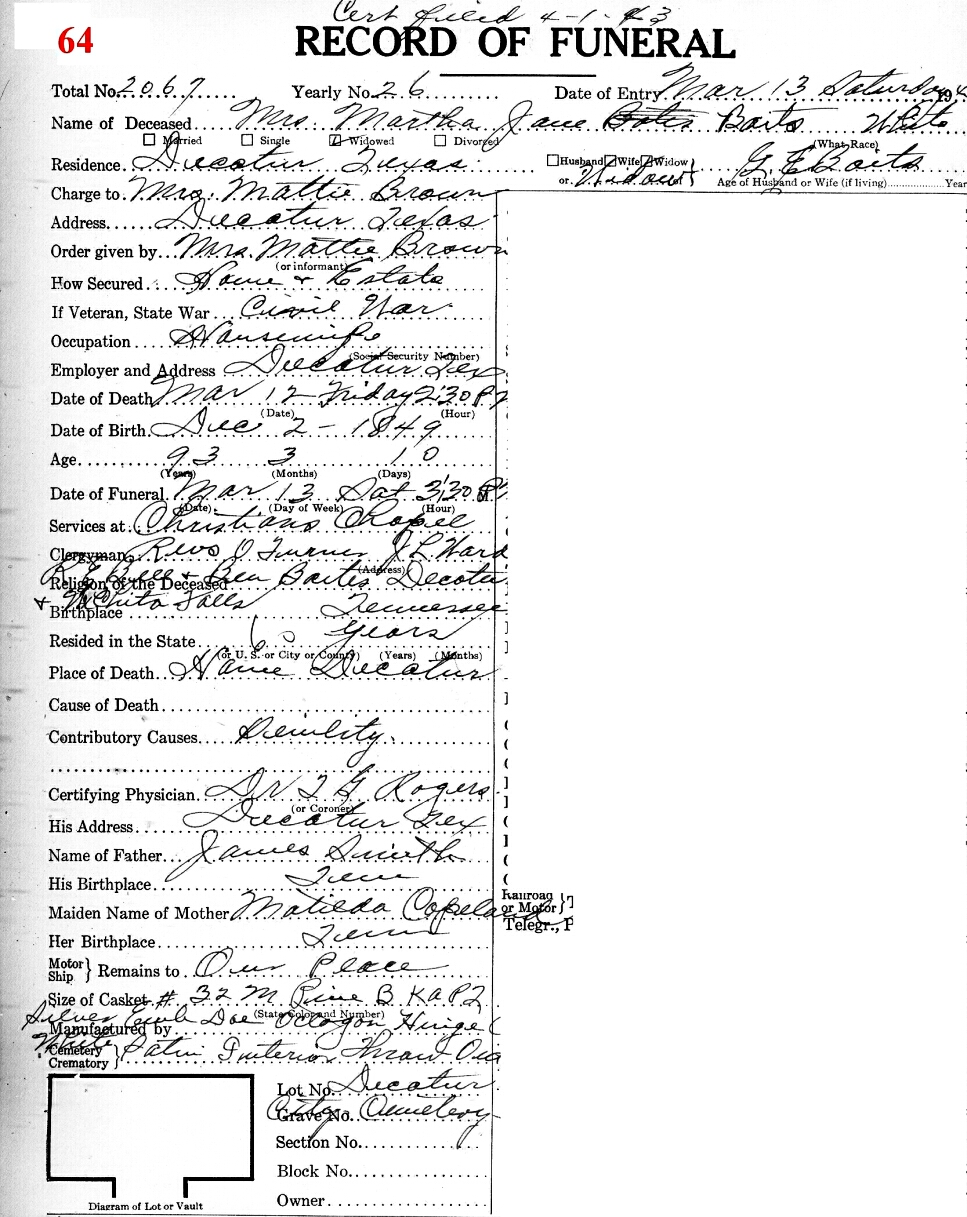 Cert filed 4-1-43
64
RECORD OF FUNERAL
Total No. 2067 Yearly No. 26 Date of Entry Mar 13 Saturday 194
Name of Deceased Mrs Martha Jane Bates Baits White
Married Single Widowed Divorced (What Race)
Residence Decatur Texas Husband Wife Widow G E Baits
or Widow of Age of Husband or Wife (if living) Year
Charge to Mrs. Mattie Brown
Address Decatur Texas
Order given by Mrs. Mattie Brown
(or informant)
How Secured Home & Estate
If Veteran, State War Civil War
Occupation Housewife
(Social Security Number)
Employer and Address Decatur Tex
Date of Death Mar 12 Friday 2:30 P
(Date) (Hour)
Date of Birth Dec 2 - 1849
Age 93 3 10
(Years) (Months) (Days)
Date of Funeral Mar 13 Sat 3:30 P
(Date) (Day of Week) (Hour)
Services at Christians Chapel
Clergyman Revs O Turner J L Ward
(Address)
Religion of the Deceased Bell & Ben Baites Decatu
& Wichita Falls
Birthplace Tennessee
Resided in the State 60 years
(or U. S. or City or County) (Years) (Months)
Place of Death Home Decatur
Cause of Death
Contributory Causes Senility.
Certifying Physician Dr T G Rogers
(or Coroner)
His Address Decatur Tex
Name of Father James Smith
His Birthplace Tenn
Railroad
or Motor
Maiden Name of Mother Matilda Copeland
Telegr., P
Her Birthplace Tenn
Motor
Ship Remains to Our Place
Size of Casket # 32 M Pine B K
(State Color and Number)
Silver Doe Octagon Hinge
Manufactured by
White Satin Interior Throw
Cemetery
Crematory
Lot No. Decatur
Grave No. City Cemetery
Section No.
Block No.
Owner
Diagram of Lot or Vault